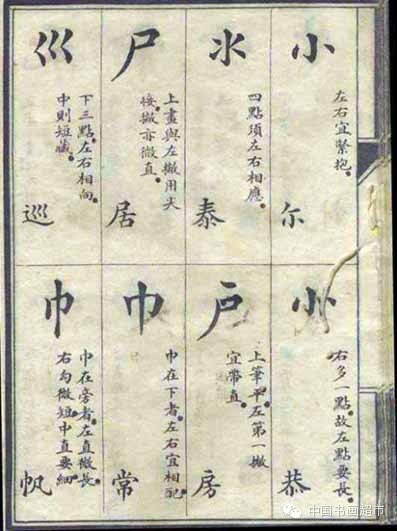 小
左右宜緊抱。
尔
氺
四點須左右相應。
泰
尸
上畫與左撇用尖
接。撇亦微直。
居
巛
下三點。左右相向。
中則短藏。
巡
㣺
右多一點。故左點要長。
恭
戶
上筆平。左第一撇
宜帶直。
房
巾
巾在下者。左右宜相配。
常
巾
巾在旁者。左直微長。
右勾微短。中直要細。
帆
中国书画超市